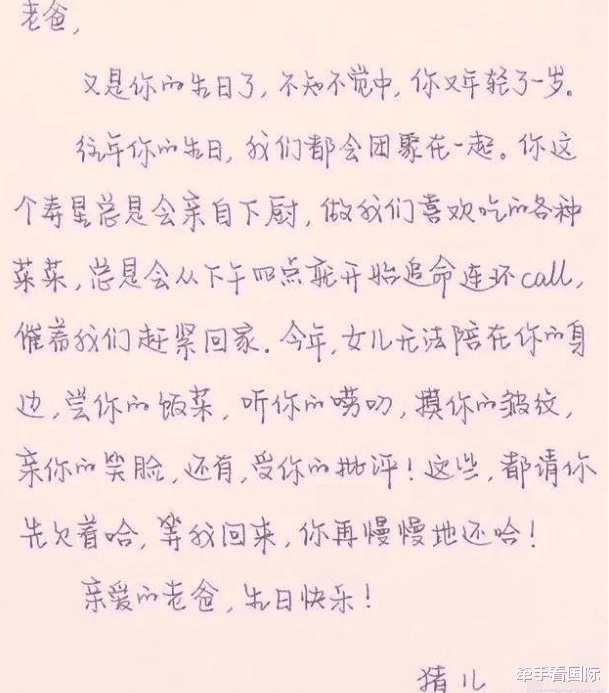 老爸，
又是你的生日了，不知不觉中，你又年轻了一岁。
往年你的生日，我们都会团聚在一起。你这
个寿星总是会亲自下厨，做我们喜欢吃的各种
菜菜，总是会从下午四点就开始追命连环call，
催着我们赶紧回家。今年，女儿无法陪在你的身
边，尝你的饭菜，听你的唠叨，摸你的皱纹，
亲你的笑脸，还有，受你的批评！这些，都请你
先欠着哈，等我回来，你再慢慢地还哈！
亲爱的老爸，生日快乐！
猪儿
牵手看国际